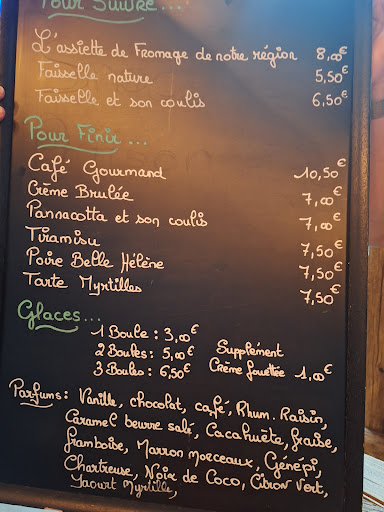 Pour Suivre...
L'assiette de Fromage de notre région 8,00€
Faisselle nature 5,50€
Faisselle et son coulis 6,50€
Pour Finir...
Café Gourmand 10,50€
Crème Brulée 7,00€
Pannacotta et son coulis 7,00€
Tiramisu 7,50€
Poire Belle Hélène 7,50€
Tarte Myrtilles 7,50€
Glaces...
1 Boule : 3,00€
2 Boules : 5,00€ Supplément
3 Boules : 6,50€ Crème fouettée 1,00€
Parfums : Vanille, chocolat, café, Rhum. Raisin,
Caramel beurre salé, Cacahuète, fraise,
framboise, Marron morceaux, Génépi,
Chartreuse, Noix de Coco, Citron Vert,
Yaourt Myrtille,